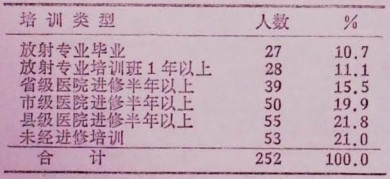 培训类型 人数 %
放射专业毕业 27 10.7
放射专业培训班1年以上 28 11.1
省级医院进修半年以上 39 15.5
市级医院进修半年以上 50 19.9
县级医院进修半年以上 55 21.8
未经进修培训 53 21.0
合计 252 100.0